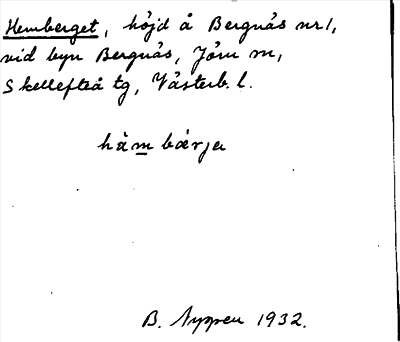 Hemberget, höjd å Bergnäs nr 1,
vid byn Bergnäs, Jörn sn,
Skellefteå tg, Västerb. l.
hä̀m bǽrja
B. Nyppen 1932.